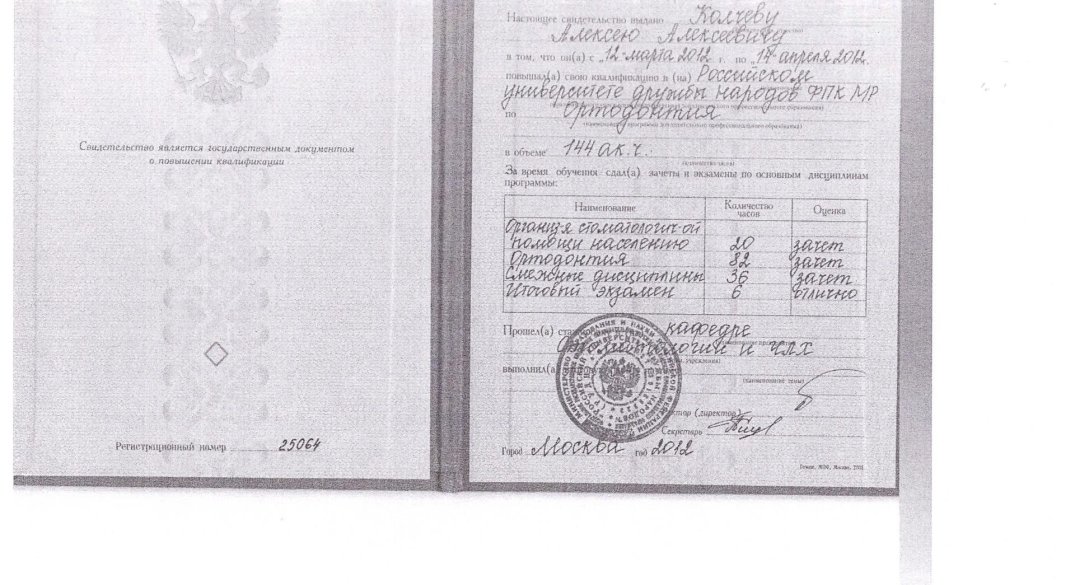 Свидетельство является государственным документом
о повышении квалификации
Регистрационный номер 25064
Настоящее свидетельство выдано Колчеву
Алексею Алексеевичу
в том, что он(а) с „12" марта 2012 г. по „14" апреля 2012г.
повышал(а) свою квалификацию в (на) Российском
университете дружбы народов ФПК МР
по Ортодонтия
(наименование программы дополнительного профессионального образования)
в объеме 144 ак.ч.
(количество часов)
За время обучения сдал(а) зачеты и экзамены по основным дисциплинам
программы:
Наименование Количество часов Оценка
Организ-я стоматологич-ой
помощи населению 20 зачет
Ортодонтия 82 зачет
Смежные дисциплины 36 зачет
Итоговый экзамен 6 отлично
Прошел(а) кафедре
и ЧЛХ
выполнил(а)
(наименование темы)
(директор)
Секретарь
Город Москва год 2012